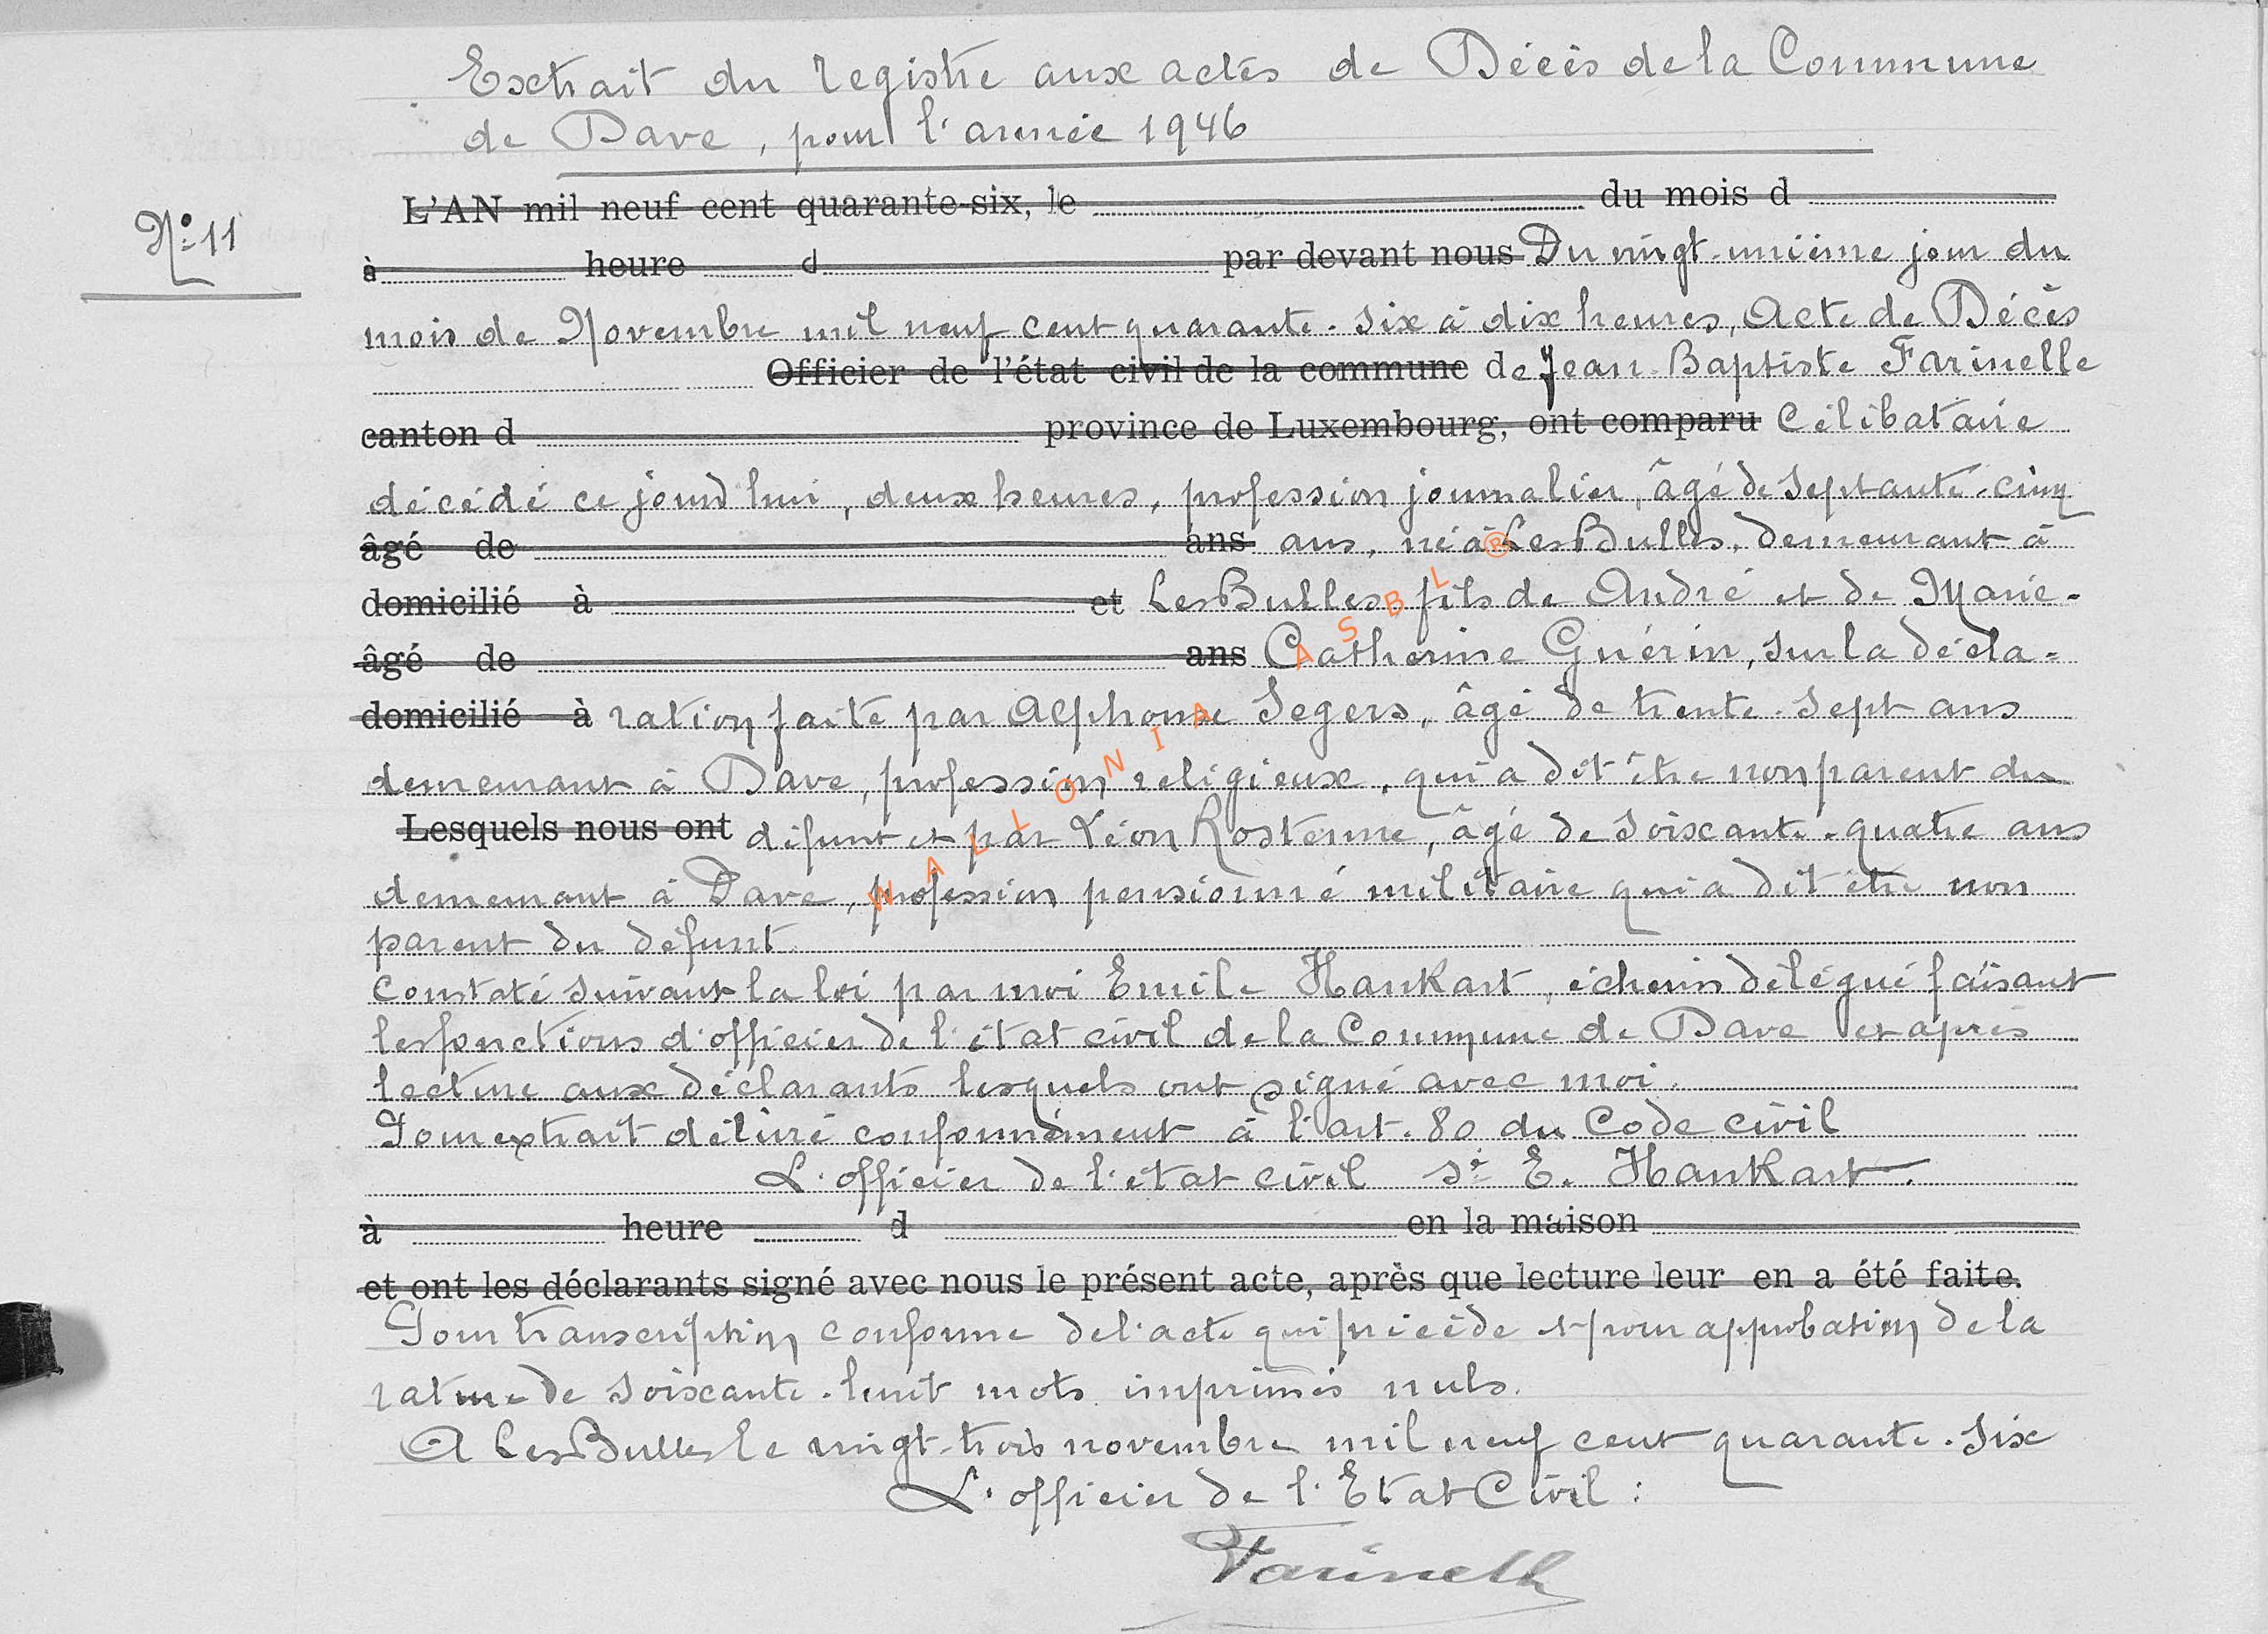 Extrait du registre aux actes de Décès de la Commune
de Dave, pour l'année 1946
N° 11
L'AN mil neuf cent quarante-six, le du mois d
à heure d par devant nous Du vingt-unième jour du
mois de Novembre mil neuf cent quarante-six à dix heures, Acte de Décès
Officier de l'état civil de la commune de Jean-Baptiste Farinelle
canton d province de Luxembourg, ont comparu Célibataire
décédé ce jourd'hui, deux heures, profession journalier, âgé de septante-cinq
âgé de ans ans, né à Les Bulles, demeurant à
domicilié à et Les Bulles, fils de André et de Marie-
âgé de ans Catherine Guérin, sur la décla=
domicilié à ration faite par Alphonse Segers, âgé de trente-sept ans
demeurant à Dave, profession religieux, qui a dit être non parent du
Lesquels nous ont défunt et par Léon Rostenne, âgé de soixante-quatre ans
demeurant à Dave, profession pensionné militaire qui a dit être non
parent du défunt.
Constaté suivant la loi par moi Emile Hankart, échevin délégué faisant
les fonctions d'officier de l'état civil de la Commune de Dave et après
lecture aux déclarants lesquels ont signé avec moi.
Pour extrait délivré conformément à l'art. 80 du Code civil
L'officier de l'état civil sé E. Hankart.
à heure d en la maison
et ont les déclarants signé avec nous le présent acte, après que lecture leur en a été faite.
Pour transcription conforme de l'acte qui précède et pour approbation de la
rature de soixante-huit mots imprimés nuls.
A Les Bulles le vingt-trois novembre mil neuf cent quarante-six
L'officier de l'Etat Civil :
Farinelle
WALLONIA ASBL ®